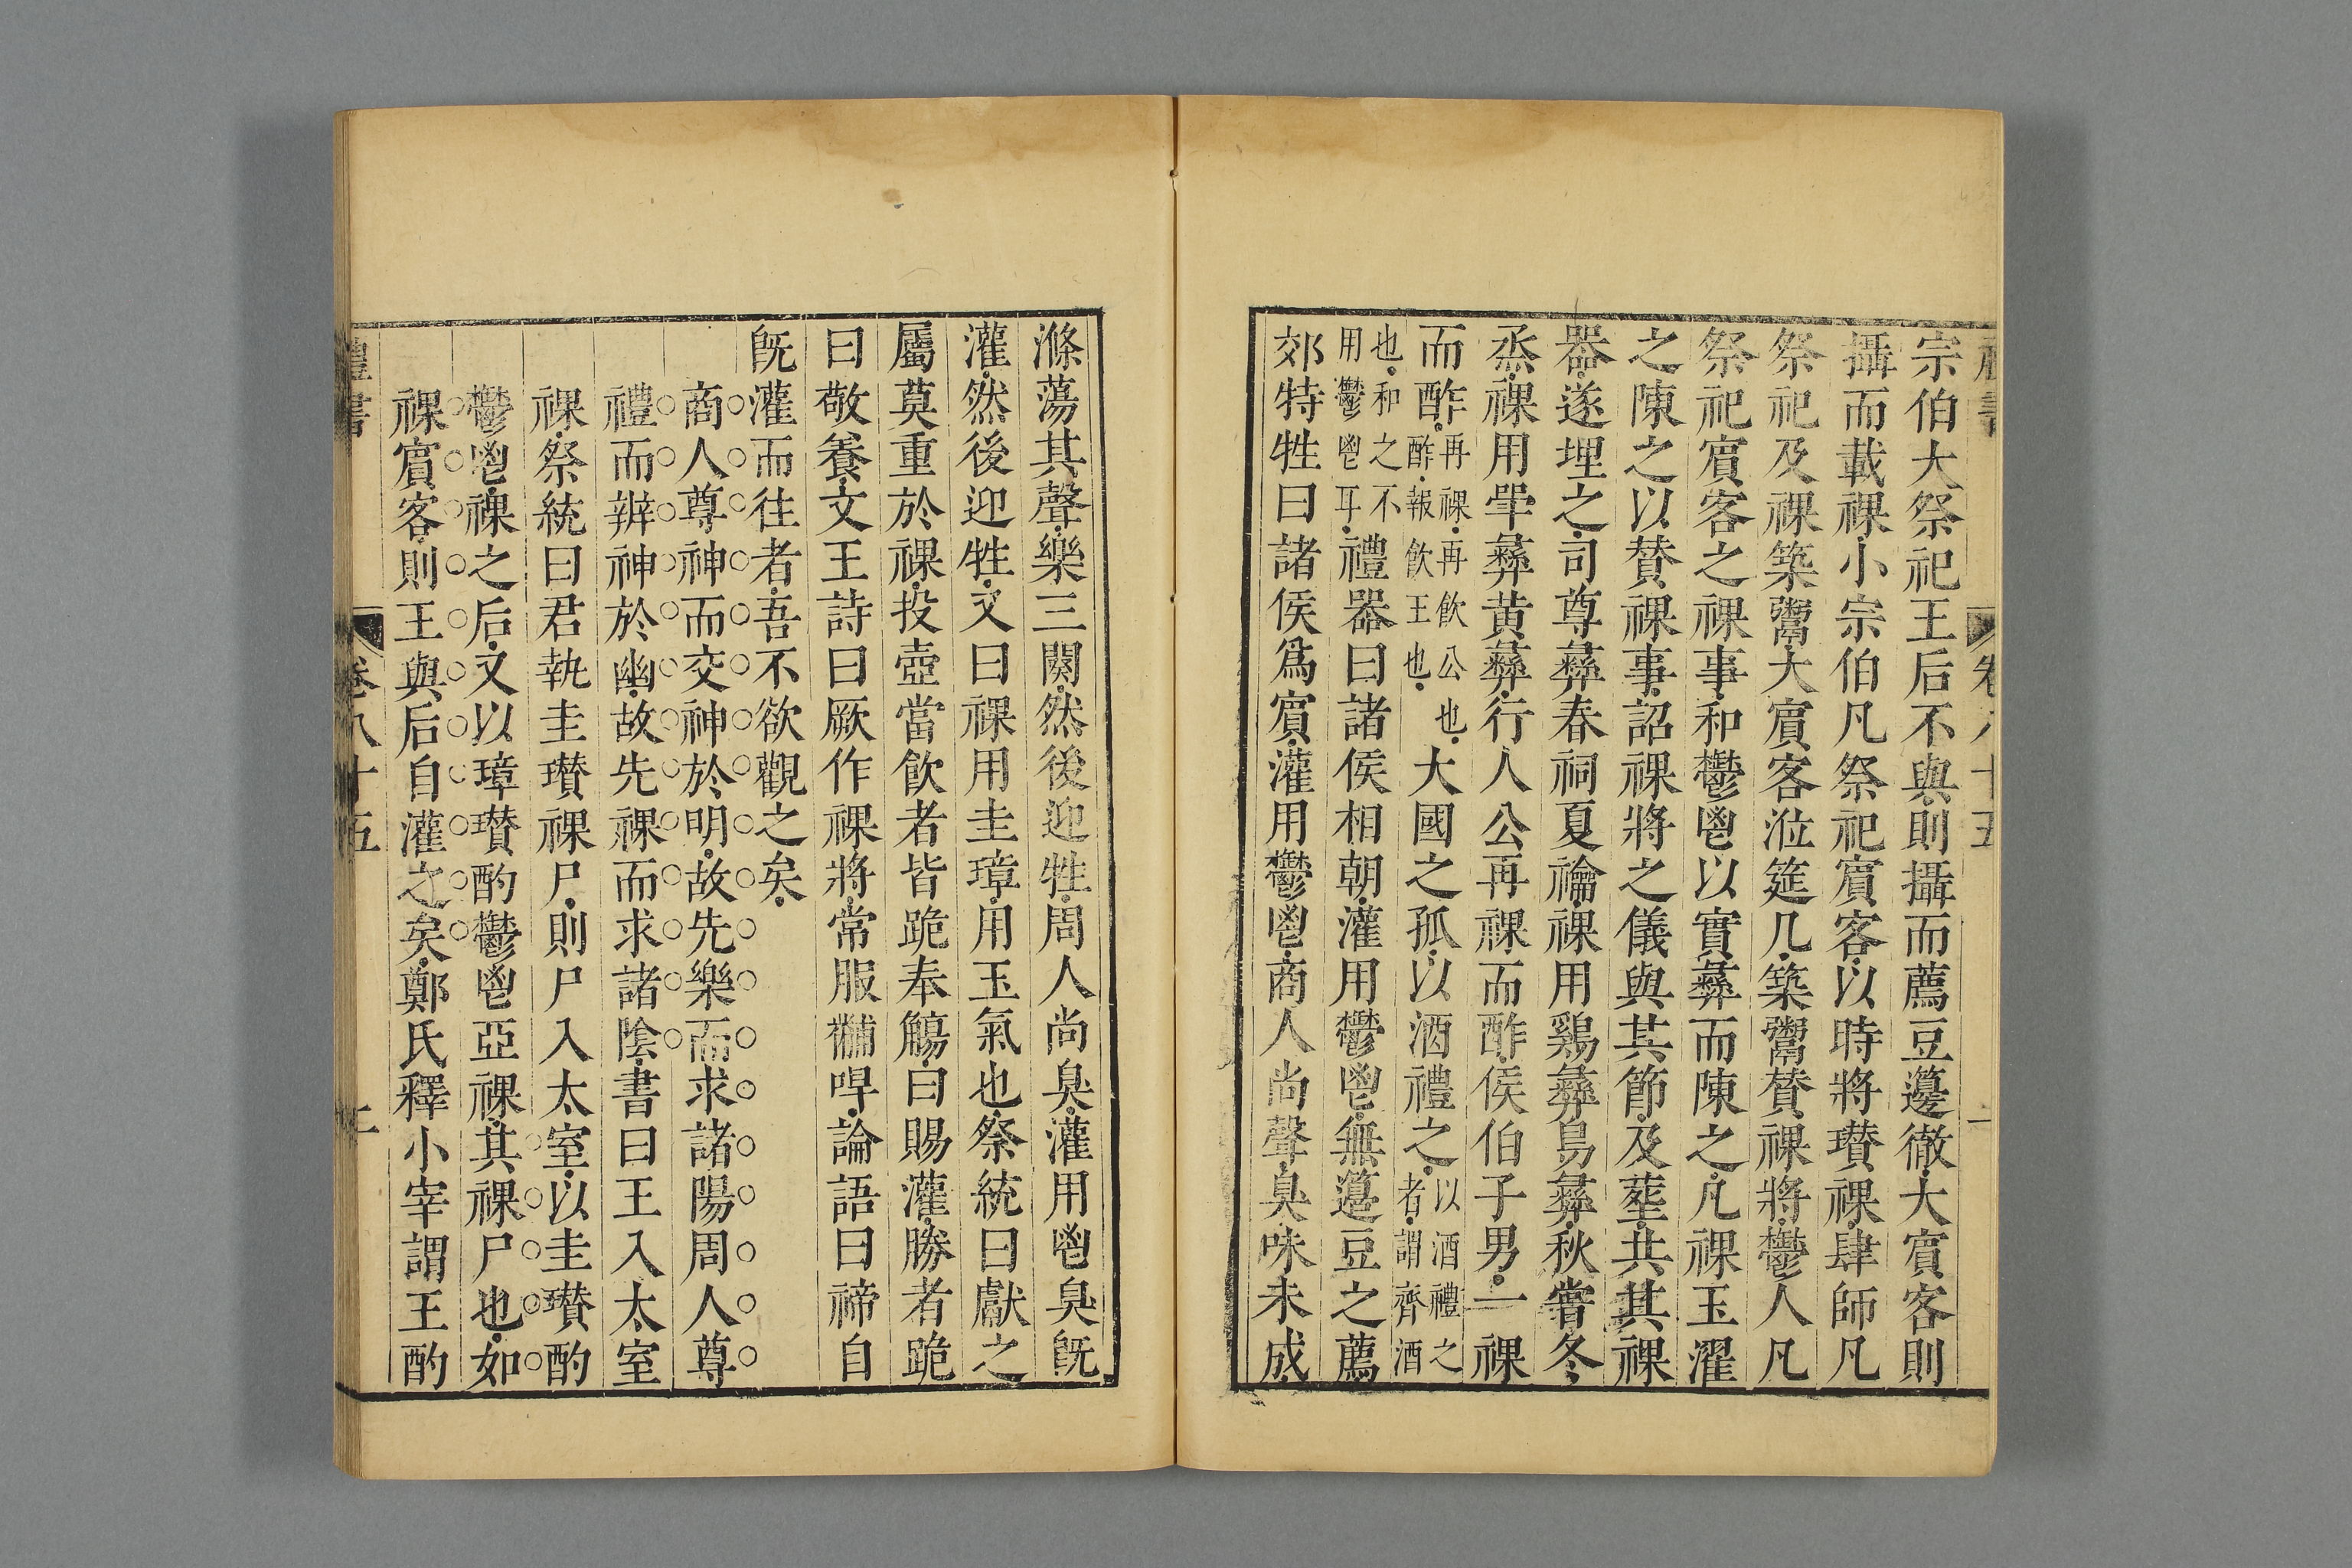 宗伯大祭祀王后不與則攝而薦豆籩徹大賔客則
攝而載祼小宗伯凡祭祀賔客以時將瓚祼肆師凡
祭祀及祼築鬻大賔客涖筵几築鬻賛祼將鬱人凡
祭祀賔客之祼事和鬱鬯以實彝而陳之凡祼玉濯
之陳之以賛祼事詔祼將之儀與其節及塟共其祼
器遂埋之司尊彝春祠夏禴祼用鷄彝鳥彝秋嘗冬
烝祼用斝彝黄彝行人公再祼而酢侯伯子男一祼
而酢再祼再飲公也酢報飲王也大國之孤以酒禮之以酒禮之者謂齊酒
也和之不用鬱鬯耳禮器曰諸侯相朝灌用鬱鬯無籩豆之薦
郊特牲曰諸侯爲賔灌用鬱鬯商人尚聲臭味未成
滌蕩其聲樂三闋然後迎牲周人尚臭灌用鬯臭旣
灌然後迎牲又曰祼用圭璋用玉氣也祭統曰獻之
屬莫重於祼投壺當飲者皆跪奉觴曰賜灌勝者跪
曰敬養文王詩曰厥作祼將常服黼冔論語曰禘自
旣灌而往者吾不欲觀之矣
商人尊神而交神於明故先樂而求諸陽周人尊
禮而辨神於幽故先祼而求諸陰書曰王入太室
祼祭統曰君執圭瓚祼尸則尸入太室以圭瓚酌
鬱鬯祼之后又以璋瓚酌鬱鬯亞祼其祼尸也如
祼賔客則王與后自灌之矣鄭氏釋小宰謂王酌
禮書
卷八十五